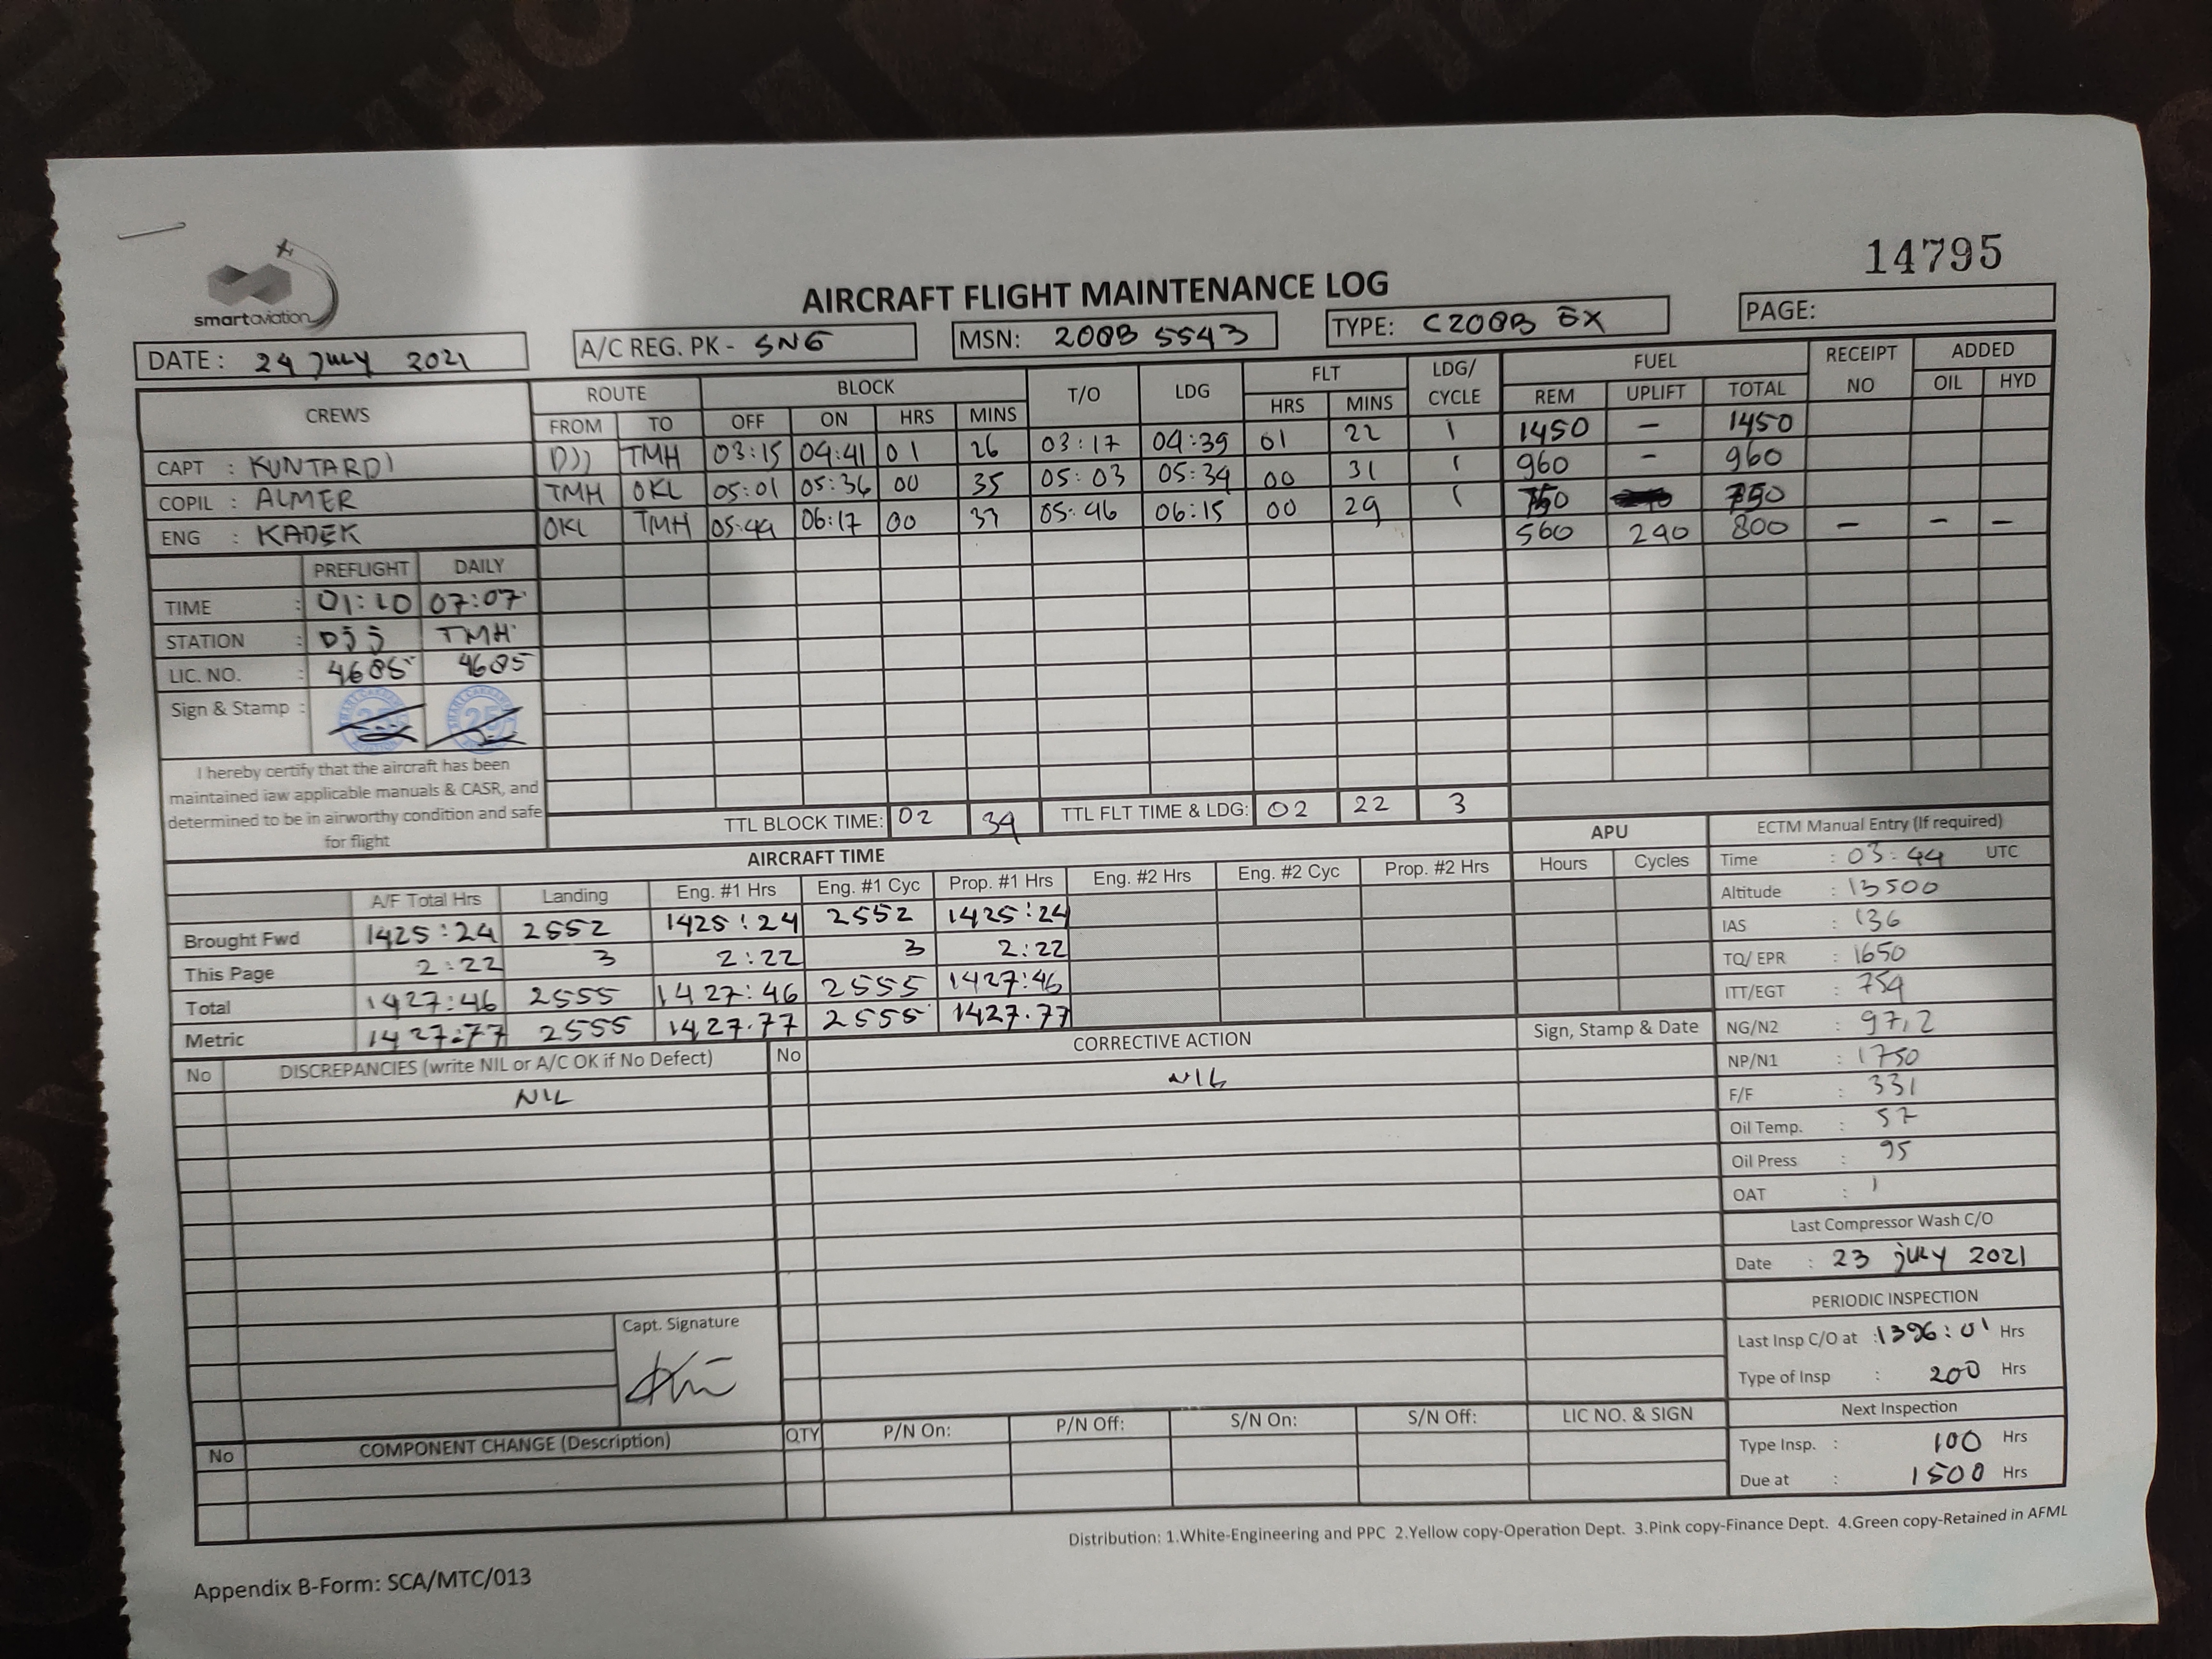 14795
smartaviation
AIRCRAFT FLIGHT MAINTENANCE LOG
DATE : 24 JULY 2021 A/C REG. PK - SNG MSN: 208B 5543 TYPE: C208B EX PAGE:
CREWS ROUTE BLOCK T/O LDG FLT LDG/ CYCLE FUEL RECEIPT NO ADDED
FROM TO OFF ON HRS MINS HRS MINS REM UPLIFT TOTAL OIL HYD
CAPT : KUNTARDI DJJ TMH 03:15 04:41 01 26 03:17 04:39 01 22 1 1450 - 1450
COPIL : ALMER TMH OKL 05:01 05:36 00 35 05:03 05:34 00 31 1 960 - 960
ENG : KADEK OKL TMH 05:44 06:17 00 33 05:46 06:15 00 29 1 750 750
560 240 800 - - -
PREFLIGHT DAILY
TIME : 01:10 07:07
STATION : DJJ TMH
LIC. NO. : 4685 4685
Sign & Stamp :
I hereby certify that the aircraft has been
maintained iaw applicable manuals & CASR, and
determined to be in airworthy condition and safe
for flight
TTL BLOCK TIME: 02 34 TTL FLT TIME & LDG: 02 22 3
AIRCRAFT TIME APU
A/F Total Hrs Landing Eng. #1 Hrs Eng. #1 Cyc Prop. #1 Hrs Eng. #2 Hrs Eng. #2 Cyc Prop. #2 Hrs Hours Cycles
Brought Fwd 1425:24 2552 1425:24 2552 1425:24
This Page 2:22 3 2:22 3 2:22
Total 1427:46 2555 1427:46 2555 1427:46
Metric 1427.77 2555 1427.77 2555 1427.77
ECTM Manual Entry (If required)
Time : 03:44 UTC
Altitude : 13500
IAS : 136
TQ/ EPR : 1650
ITT/EGT : 754
NG/N2 : 97,2
NP/N1 : 1750
F/F : 331
Oil Temp. : 57
Oil Press : 95
OAT : 1
Last Compressor Wash C/O
Date : 23 july 2021
PERIODIC INSPECTION
Last Insp C/O at : 1396:01 Hrs
Type of Insp : 200 Hrs
Next Inspection
Type Insp. : 100 Hrs
Due at : 1500 Hrs
No DISCREPANCIES (write NIL or A/C OK if No Defect) No CORRECTIVE ACTION Sign, Stamp & Date
NIL NIL
Capt. Signature
No COMPONENT CHANGE (Description) QTY P/N On: P/N Off: S/N On: S/N Off: LIC NO. & SIGN
Distribution: 1.White-Engineering and PPC 2.Yellow copy-Operation Dept. 3.Pink copy-Finance Dept. 4.Green copy-Retained in AFML
Appendix B-Form: SCA/MTC/013